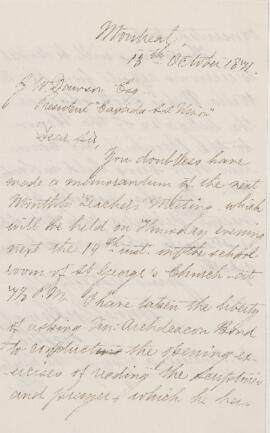 Montreal,
13th October 1871.
J. W. Dawson Esq.
President "Canada S.S. Union"
Dear Sir,
You doubtless have
made a memorandum of the next
Monthly Teacher's Meeting which
will be held on Thursday evening
next the 19th inst. in the school
room of St George's Church - at
7½ P.M. I have taken the liberty
of asking Ven. Archdeacon Bond
to conduct the opening ex-
ercises of reading the Scriptures
and prayer, which he has